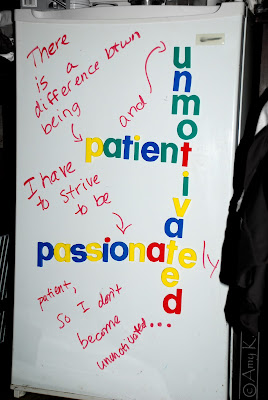 There
is a
difference btwn
being
patient
and
unmotivated
I have
to strive
to be
passionately
patient,
so I don't
become
unmotivated...
© Amy K